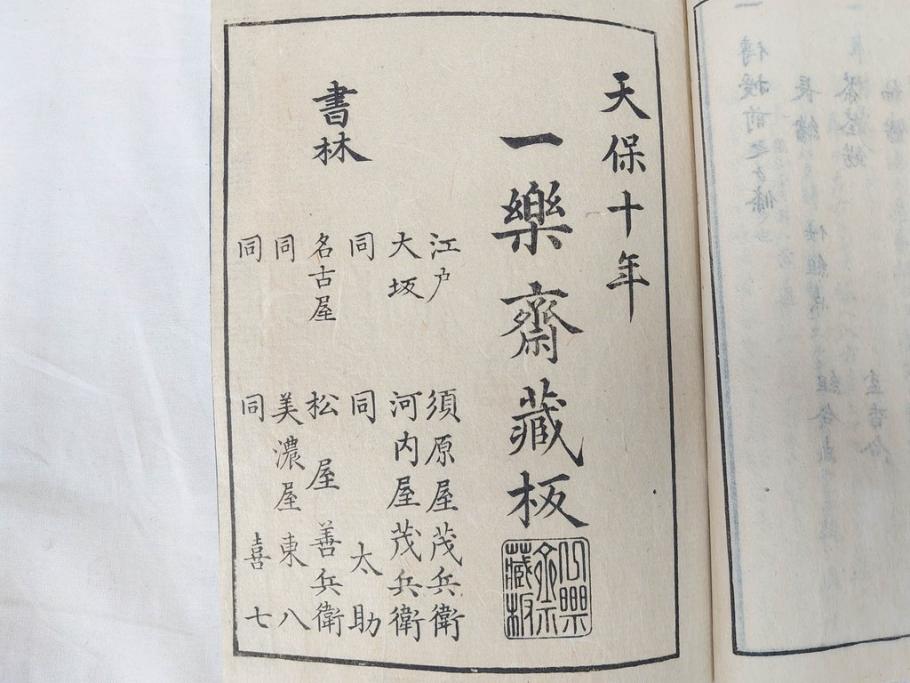 天保十年
一樂齋藏板
書林
江戸 須原屋茂兵衛
大坂 河内屋茂兵衛
同 同 太助
名古屋 松屋善兵衛
同 美濃屋東八
同 同 喜七